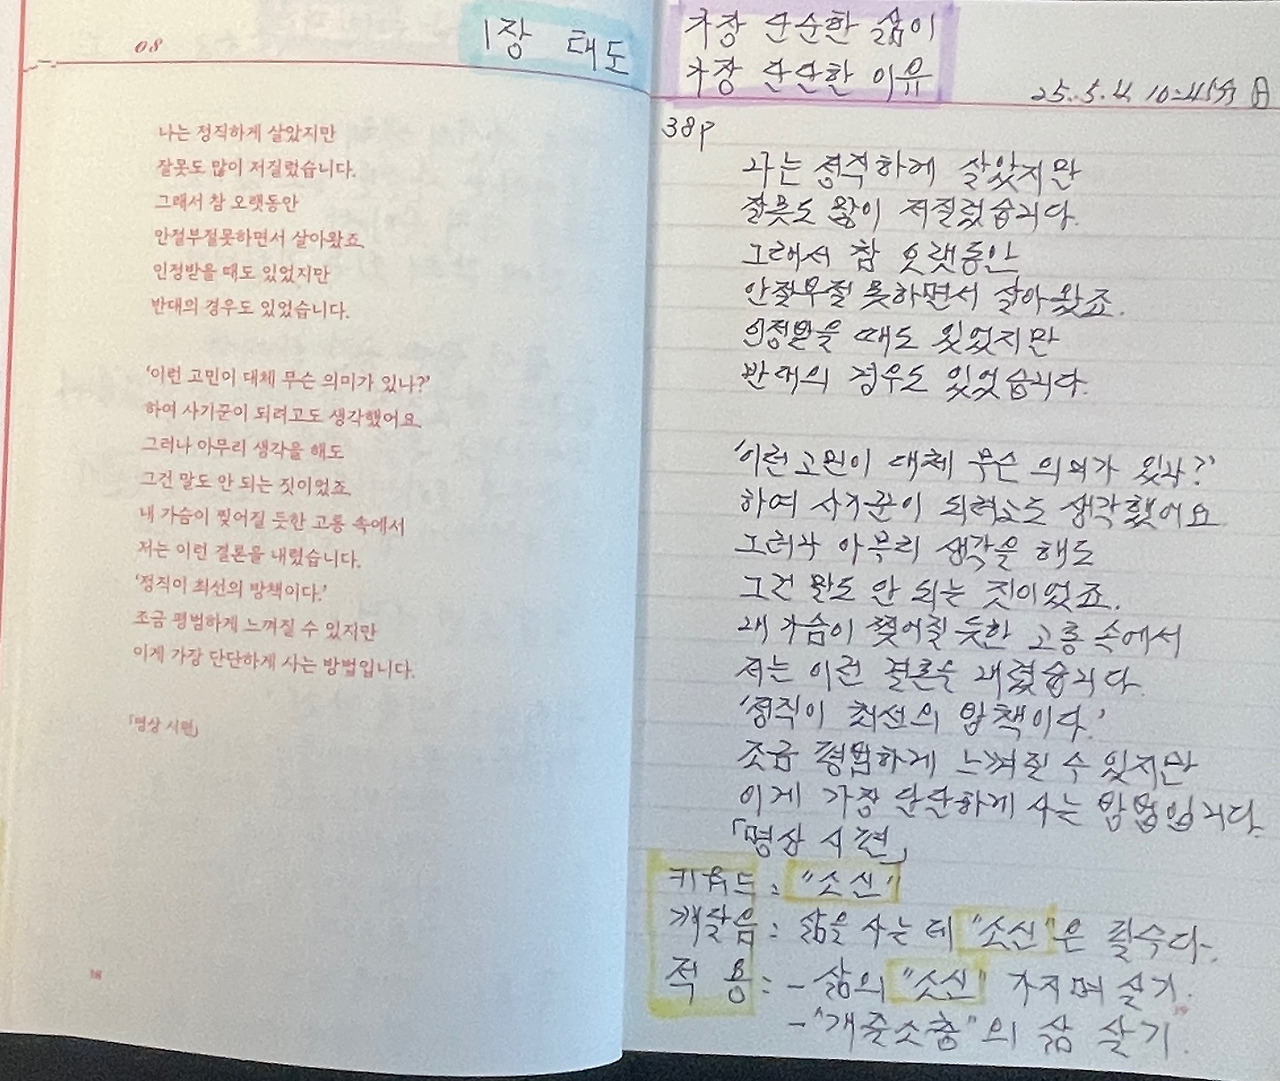 08
1장 태도
나는 정직하게 살았지만
잘못도 많이 저질렀습니다.
그래서 참 오랫동안
안절부절못하면서 살아왔죠.
인정받을 때도 있었지만
반대의 경우도 있었습니다.
‘이런 고민이 대체 무슨 의미가 있나?’
하여 사기꾼이 되려고도 생각했어요.
그러나 아무리 생각을 해도
그건 말도 안 되는 짓이었죠.
내 가슴이 찢어질 듯한 고통 속에서
저는 이런 결론을 내렸습니다.
‘정직이 최선의 방책이다.’
조금 평범하게 느껴질 수 있지만
이게 가장 단단하게 사는 방법입니다.
「명상 시편」
38
가장 단순한 삶이
가장 단단한 이유
25.5.4. 10:45分 日
38p
나는 정직하게 살았지만
잘못도 많이 저질렀습니다.
그래서 참 오랫동안
안절부절 못하면서 살아왔죠.
인정받을 때도 있었지만
반대의 경우도 있었습니다.
‘이런 고민이 대체 무슨 의미가 있나?’
하여 사기꾼이 되려고도 생각했어요
그러나 아무리 생각을 해도
그건 말도 안 되는 짓이었죠.
내 가슴이 찢어질 듯한 고통 속에서
저는 이런 결론을 내렸습니다.
‘정직이 최선의 방책이다.’
조금 평범하게 느껴질 수 있지만
이게 가장 단단하게 사는 방법입니다.
「명상 시편」
키워드 : “소신”
깨달음 : 삶을 사는 데 “소신”은 필수다.
적용 : - 삶의 “소신” 가지며 살기.
- “개준소충”의 삶 살기.
39